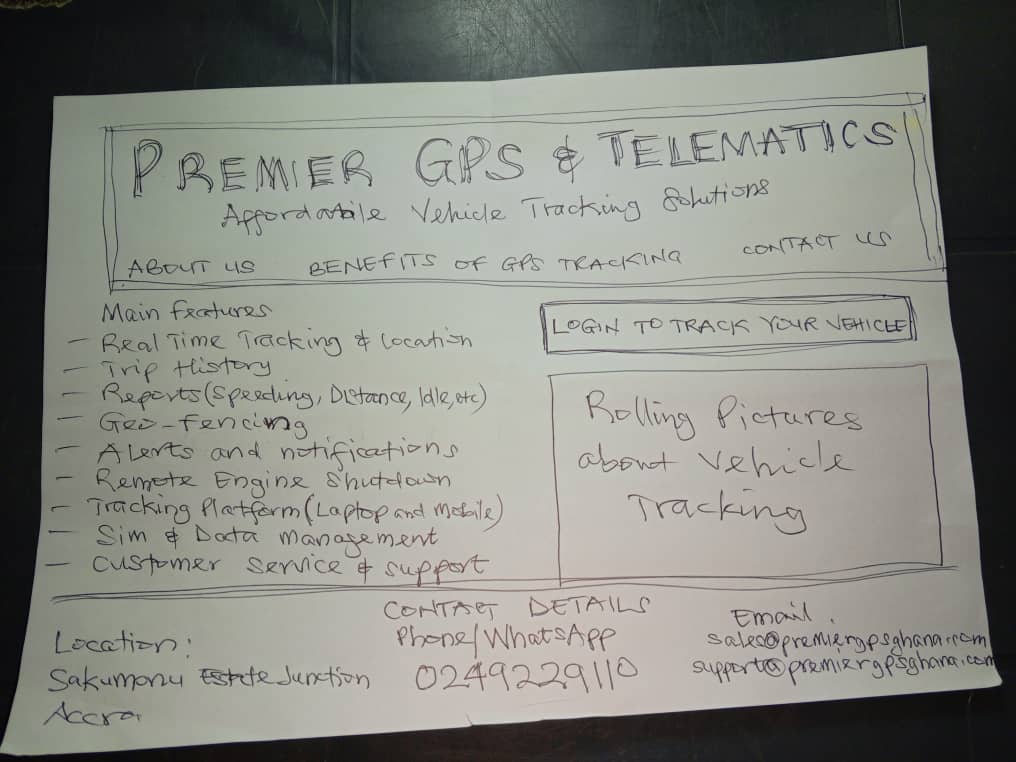 PREMIER GPS & TELEMATICS
Affordable Vehicle Tracking Solutions
ABOUT US BENEFITS OF GPS TRACKING CONTACT US
Main features
- Real Time Tracking & Location
- Trip History
- Reports (Speeding, Distance, Idle, etc)
- Geo-fencing
- Alerts and notifications
- Remote Engine Shutdown
- Tracking Platform (Laptop and Mobile)
- Sim & Data management
- Customer service & support
LOGIN TO TRACK YOUR VEHICLE
Rolling Pictures
about Vehicle
Tracking
CONTACT DETAILS
Location:
Sakumonu Estate Junction
Accra
Phone/WhatsApp
0249229110
Email.
sales@premiergpsghana.com
support@premiergpsghana.com